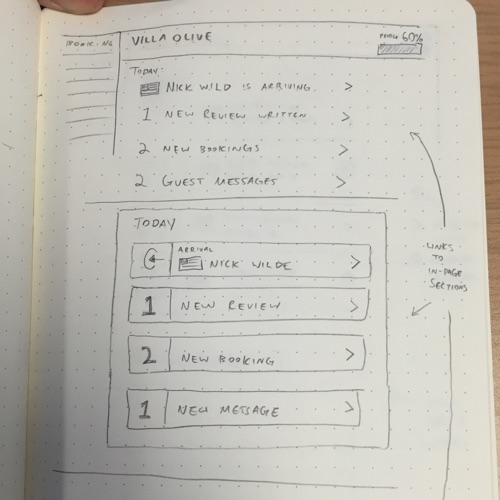 VILLA OLIVE
60%
TODAY
NICK WILD IS ARRIVING.
1 NEW REVIEW WRITTEN
2 NEW BOOKINGS
2 GUEST MESSAGES
TODAY
ARRIVAL
NICK WILDE
1 NEW REVIEW
2 NEW BOOKING
1 NEW MESSAGE
LINKS
TO
IN-PAGE
SECTIONS